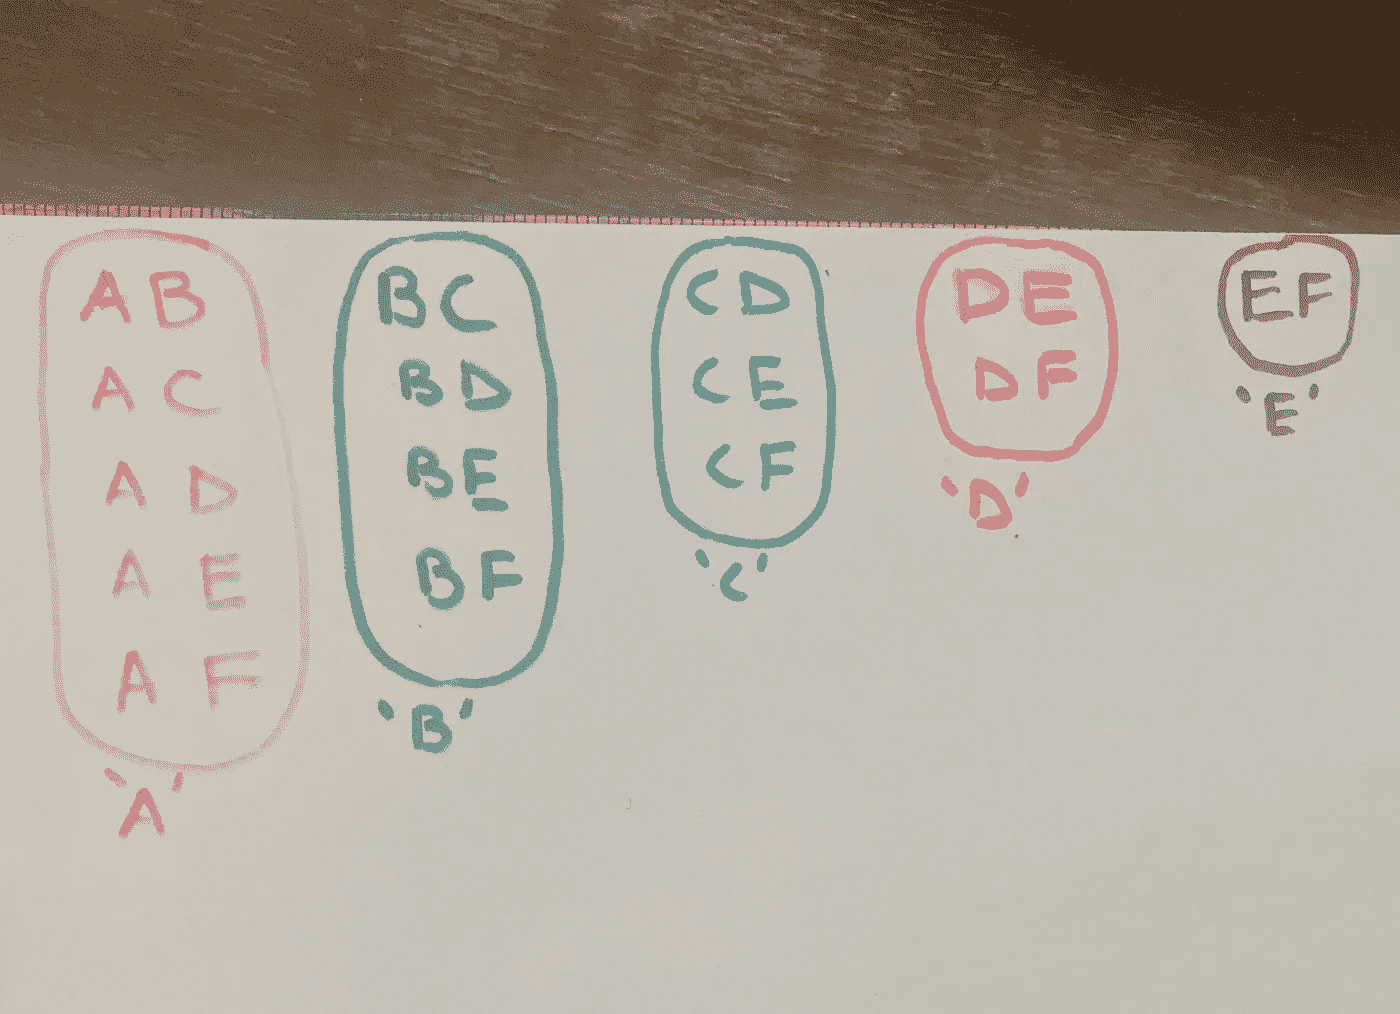 AB
AC
AD
AE
AF
'A'
BC
BD
BE
BF
'B'
CD
CE
CF
'C'
DE
DF
'D'
EF
'E'